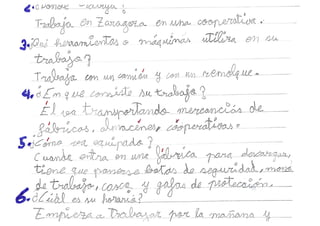 2. ¿Dónde trabaja?
Trabaja en Zaragoza en una cooperativa.
3. ¿Qué herramientas o máquinas utiliza en su
trabajo?
Trabaja con un camión y con un remolque.
4. ¿En qué consiste su trabajo?
Él va transportando mercancías de
fábricas, almacenes, cooperativas.
5. ¿Cómo va equipado?
Cuando entra en una fábrica para descargar,
tiene que ponerse botas de seguridad, mono
de trabajo, casco y gafas de protección.
6. ¿Cuál es su horario?
Empieza a trabajar por la mañana y